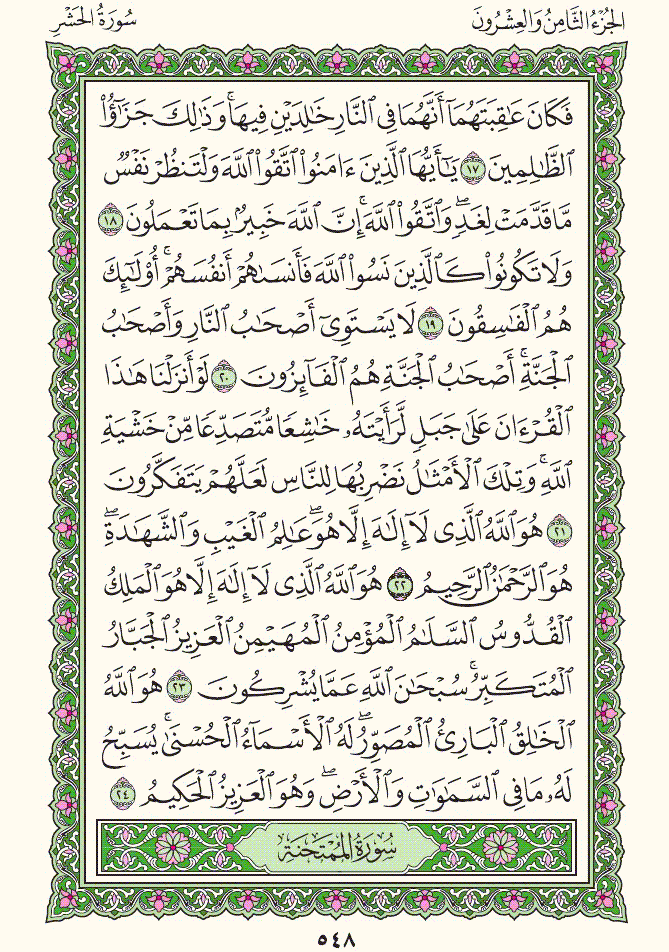 الجزء الثامن والعشرون
سورة الحشر
فَكَانَ عَٰقِبَتَهُمَآ أَنَّهُمَا فِى ٱلنَّارِ خَٰلِدَيْنِ فِيهَا ۚ وَذَٰلِكَ جَزَٰٓؤُا۟
ٱلظَّٰلِمِينَ ١٧ يَٰٓأَيُّهَا ٱلَّذِينَ ءَامَنُوا۟ ٱتَّقُوا۟ ٱللَّهَ وَلْتَنظُرْ نَفْسٌ
مَّا قَدَّمَتْ لِغَدٍ ۖ وَٱتَّقُوا۟ ٱللَّهَ ۚ إِنَّ ٱللَّهَ خَبِيرٌۢ بِمَا تَعْمَلُونَ ١٨
وَلَا تَكُونُوا۟ كَٱلَّذِينَ نَسُوا۟ ٱللَّهَ فَأَنسَىٰهُمْ أَنفُسَهُمْ ۚ أُو۟لَٰٓئِكَ
هُمُ ٱلْفَٰسِقُونَ ١٩ لَا يَسْتَوِىٓ أَصْحَٰبُ ٱلنَّارِ وَأَصْحَٰبُ
ٱلْجَنَّةِ ۚ أَصْحَٰبُ ٱلْجَنَّةِ هُمُ ٱلْفَآئِزُونَ ٢٠ لَوْ أَنزَلْنَا هَٰذَا
ٱلْقُرْءَانَ عَلَىٰ جَبَلٍ لَّرَأَيْتَهُۥ خَٰشِعًا مُّتَصَدِّعًا مِّنْ خَشْيَةِ
ٱللَّهِ ۚ وَتِلْكَ ٱلْأَمْثَٰلُ نَضْرِبُهَا لِلنَّاسِ لَعَلَّهُمْ يَتَفَكَّرُونَ
٢١ هُوَ ٱللَّهُ ٱلَّذِى لَآ إِلَٰهَ إِلَّا هُوَ ۖ عَٰلِمُ ٱلْغَيْبِ وَٱلشَّهَٰدَةِ ۖ
هُوَ ٱلرَّحْمَٰنُ ٱلرَّحِيمُ ٢٢ هُوَ ٱللَّهُ ٱلَّذِى لَآ إِلَٰهَ إِلَّا هُوَ ٱلْمَلِكُ
ٱلْقُدُّوسُ ٱلسَّلَٰمُ ٱلْمُؤْمِنُ ٱلْمُهَيْمِنُ ٱلْعَزِيزُ ٱلْجَبَّارُ
ٱلْمُتَكَبِّرُ ۚ سُبْحَٰنَ ٱللَّهِ عَمَّا يُشْرِكُونَ ٢٣ هُوَ ٱللَّهُ
ٱلْخَٰلِقُ ٱلْبَارِئُ ٱلْمُصَوِّرُ ۖ لَهُ ٱلْأَسْمَآءُ ٱلْحُسْنَىٰ ۚ يُسَبِّحُ
لَهُۥ مَا فِى ٱلسَّمَٰوَٰتِ وَٱلْأَرْضِ ۖ وَهُوَ ٱلْعَزِيزُ ٱلْحَكِيمُ ٢٤
سورة الممتحنة
٥٤٨